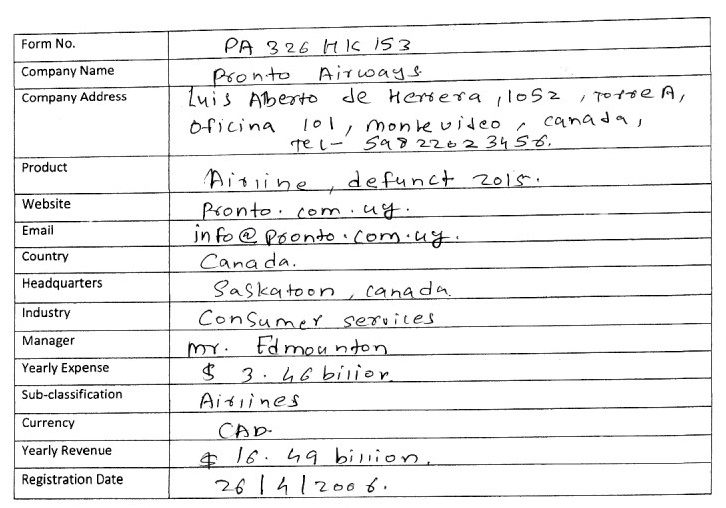 Form No. PA 326 HK 153
Company Name Pronto Airways
Company Address Luis Alberto de Herrera, 1052, Torre A,
Oficina 101, montevideo, canada,
Tel- 598 22023456.
Product Airline, defunct 2015.
Website Pronto.com.uy.
Email info@pronto.com.uy.
Country Canada.
Headquarters Saskatoon, canada
Industry Consumer services
Manager mr. Edmounton
Yearly Expense $ 3.46 bilion
Sub-classification Airlines
Currency CAD-
Yearly Revenue $ 16.49 billion.
Registration Date 26/4/2006.